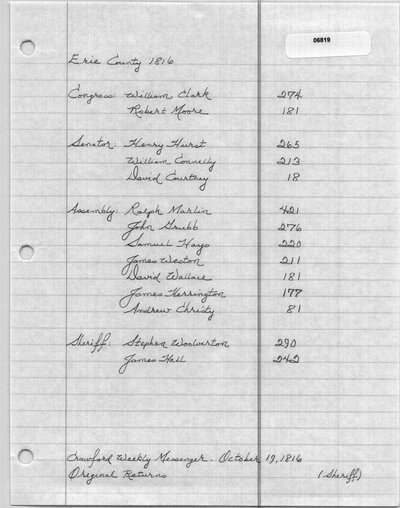 06819
Erie County 1816
Congress: William Clark 274
Robert Moore 181
Senator: Henry Hurst 265
William Connelly 213
David Courtney 18
Assembly: Ralph Marlin 421
John Grubb 276
Samuel Hays 220
James Weston 211
David Wallace 181
James Herrington 177
Andrew Christy 81
Sheriff: Stephen Woolverton 290
James Hall 242
Crawford Weekly Messenger - October 19, 1816
Original Returns (Sheriff)